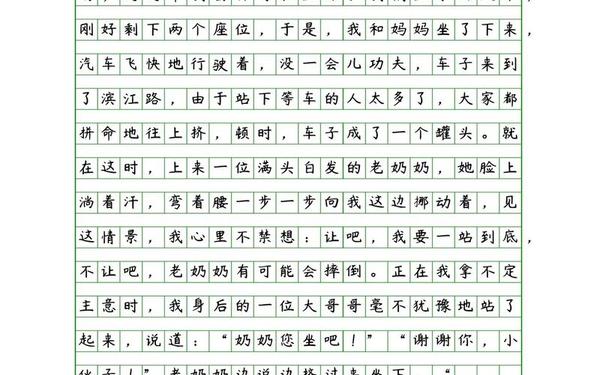 刚好剩下两个座位，于是，我和妈妈坐了下来，
汽车飞快地行驶着，没一会儿功夫，车子来到
了滨江路，由于站下等车的人太多了，大家都
拼命地往上挤，顿时，车子成了一个罐头。就
在这时，上来一位满头白发的老奶奶，她脸上
淌着汗，弯着腰一步一步向我这边挪动着，见
这情景，我心里不禁想：让吧，我要一站到底，
不让吧，老奶奶有可能会摔倒。正在我拿不定
主意时，我身后的一位大哥哥毫不犹豫地站了
起来，说道：“奶奶您坐吧！”“谢谢你，小
伙子！”老奶奶边说边挤过来坐下。“